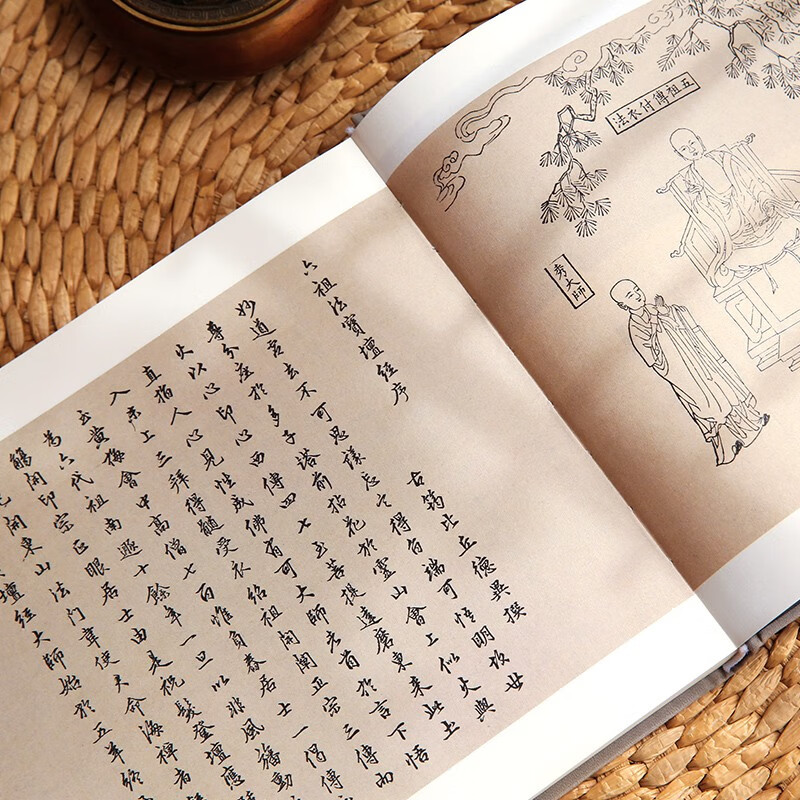 六祖法寶壇經序
古筠比丘德異撰
妙道虛玄不可思議忘言得旨端可悟明故世
尊分座於多子塔前拈花於靈山會上似火與
火以心印心西傳四七至菩提達磨東来此土
直指人心見性成佛有可大師者首於言下悟
入末上三拜得髓受衣紹祖開闡正宗三傳而
至黃梅會中高僧七百惟負舂居士一偈傳
為六代祖南遯十餘年一旦以非風旛動
觸開印宗正眼居士由是祝髮登壇應
開東山法門韋使君命海禪者
壇經大師始於五羊終
五祖傳付衣法
秀大師